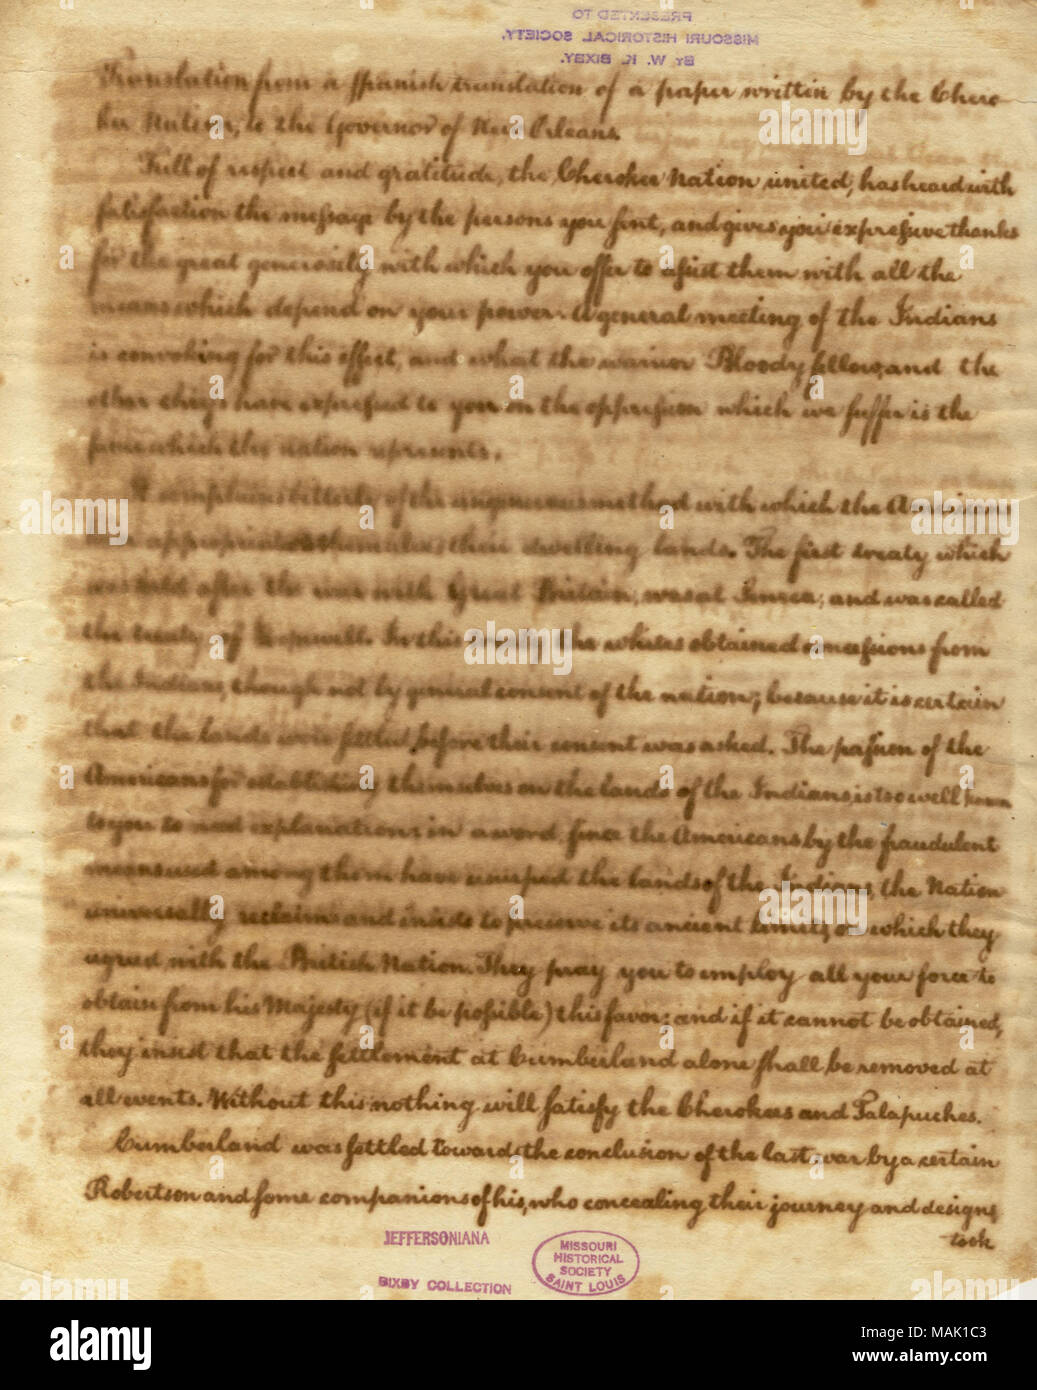 PRESENTED TO
MISSOURI HISTORICAL SOCIETY.
BY W. K. BIXBY.
Translation from a Spanish translation of a paper written by the Chero-
kee Nation, to the Governor of New Orleans.
Full of respect and gratitude, the Cherokee Nation united, has heard with
satisfaction the message by the persons you sent, and gives you expressive thanks
for the great generosity with which you offer to assist them with all the
means which depend on your power. A general meeting of the Indians
is convoking for this effect, and what the warrior Bloody fellow, and the
other chiefs have expressed to you on the oppression which we suffer is the
same which the nation represents.
It complains bitterly of the ungenerous method with which the Americans
appropriate to themselves their dwelling lands. The first treaty which
was held after the war with Great Britain, was at Seneca, and was called
the treaty of Hopewell. In this treaty the whites obtained concessions from
the Indians, though not by general consent of the nation; because it is certain
that the lands were settled before their consent was asked. The passion of the
Americans for establishing themselves on the lands of the Indians, is too well known
to you to need explanation: in a word, since the Americans by the fraudulent
means used among them have usurped the lands of the Indians, the Nation
universally reclaims and insists to preserve its ancient limits, on which they
agreed with the British Nation. They pray you to employ all your force to
obtain from his Majesty (if it be possible) this favor: and if it cannot be obtained,
they insist that the settlement at Cumberland alone shall be removed at
all events. Without this nothing will satisfy the Cherokees and Talapuches.
Cumberland was settled towards the conclusion of the last war by a certain
Robertson and some companions of his, who concealing their journey and designs,
took
JEFFERSONIANA
BIXBY COLLECTION
MISSOURI
HISTORICAL
SOCIETY
SAINT LOUIS
alamy
Image ID: MAK1C3
www.alamy.com